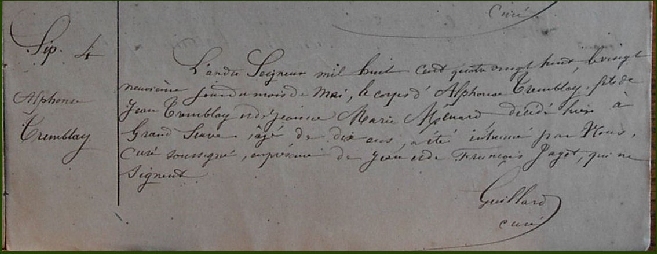 Curé
Sép. 4
Alphonse
Tremblay
L'an du Seigneur mil huit cent quatre vingt huit, le vingt
neuvième jour du mois de Mai, le corps d'Alphonse Tremblay, fils de
Jean Tremblay et de Jeanne Marie Ménard décédé hier à
Grand Save âgé de dix ans, a été inhumé par Nous,
Curé soussigné, en présence de Jean et de François Paget, qui ne
signent
Guillard
curé